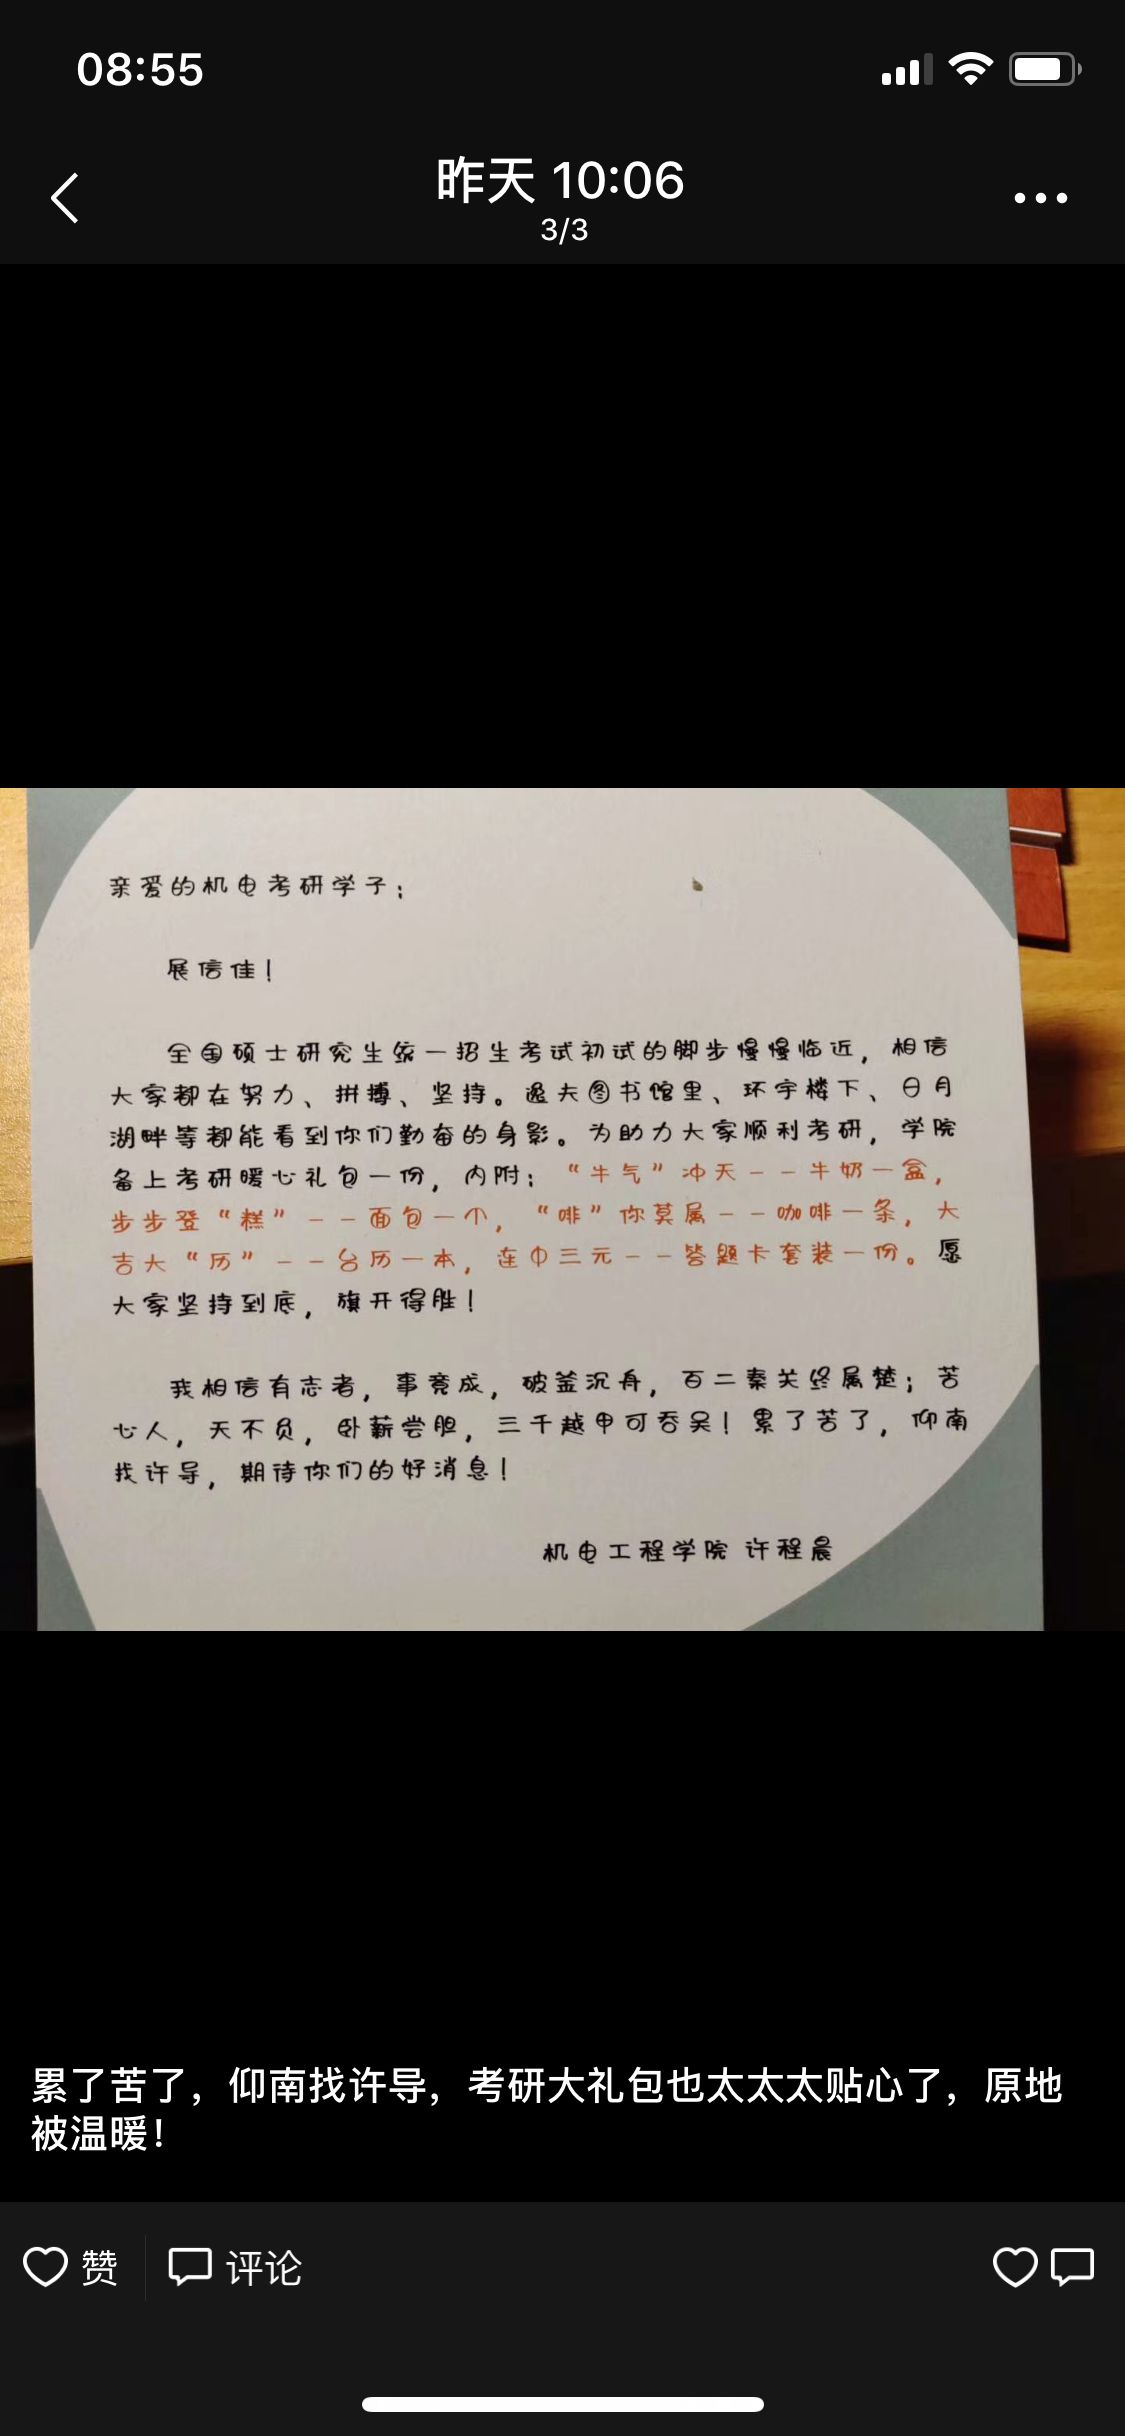 08:55
昨天 10:06
3/3
亲爱的机电考研学子：
展信佳！
全国硕士研究生统一招生考试初试的脚步慢慢临近，相信
大家都在努力、拼搏、坚持。逸夫图书馆里、环宇楼下、日月
湖畔等都能看到你们勤奋的身影。为助力大家顺利考研，学院
备上考研暖心礼包一份，内附：“牛气”冲天--牛奶一盒，
步步登“糕”--面包一个，“啡”你莫属--咖啡一条，大
吉大“历”--台历一本，连中三元--答题卡套装一份。愿
大家坚持到底，旗开得胜！
我相信有志者，事竟成，破釜沉舟，百二秦关终属楚；苦
心人，天不负，卧薪尝胆，三千越甲可吞吴！累了苦了，仰南
找许导，期待你们的好消息！
机电工程学院 许程晨
累了苦了，仰南找许导，考研大礼包也太太太贴心了，原地
被温暖！
赞
评论